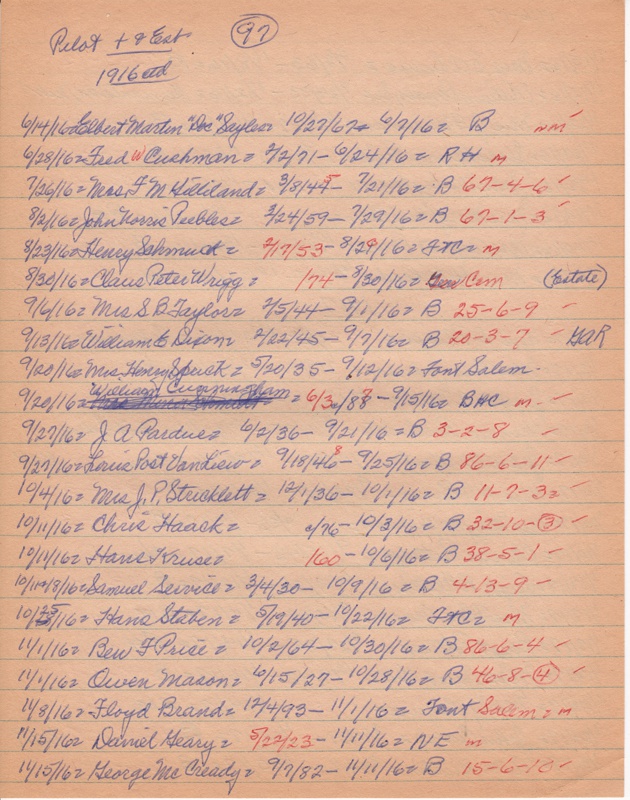 Pilot + & Est 97
1916 ctd
6/14/16 = Elbert Martin "Doc" Sayler = 10/27/67 = 6/7/16 = B mm
6/28/16 = Fred W Cushman = 2/2/71 - 6/24/16 = R H m
7/26/16 = Mrs. F M Hilliland = 3/8/45 - 7/21/16 = B 67-4-6
8/2/16 = John Norris Peebles = 2/24/59 - 7/29/16 = B 67-1-3
8/23/16 = Henry Schmuck = 2/17/53 - 8/29/16 = FTC = m
8/30/16 = Claus Peter Wrigg = /74 - 8/30/16 = Cem (Estate)
9/6/16 = Mrs S B Taylor = 2/5/44 - 9/1/16 = B 25-6-9
9/13/16 = William E Dixon = 2/22/45 - 9/7/16 = B 20-3-7 GAR
9/20/16 = Mrs. Henry Spuck = 5/20/35 - 9/12/16 = Font Salem
9/20/16 = William Cunningham = 6/3/87 - 9/15/16 = BHC m
9/27/16 = J A Pardue = 6/2/36 - 9/21/16 = B 3-2-8
9/27/16 = Louis Post VanLiew = 9/18/48 - 9/25/16 = B 86-6-11
10/4/16 = Mrs J. P. Stricklett = 12/1/36 - 10/1/16 = B 11-7-3
10/11/16 = Chris Haack = c/76 - 10/3/16 = B 32-10-3
10/11/16 = Hans Kruse = /60 - 10/6/16 = B 38-5-1
10/11+18/16 = Samuel Service = 3/4/30 - 10/9/16 = B 4-13-9
10/25/16 = Hans Staben = 5/19/40 - 10/22/16 = FTC = m
11/1/16 = Benj F Price = 10/2/64 - 10/30/16 = B 86-6-4
11/1/16 = Owen Mason = 6/15/27 - 10/28/16 = B 46-8-4
11/8/16 = Floyd Brand = 12/4/93 - 11/1/16 = Font Salem = m
11/15/16 = Daniel Geary = 5/22/23 - 11/11/16 = NE m
11/15/16 = George McCready = 9/7/82 - 11/11/16 = B 15-6-10